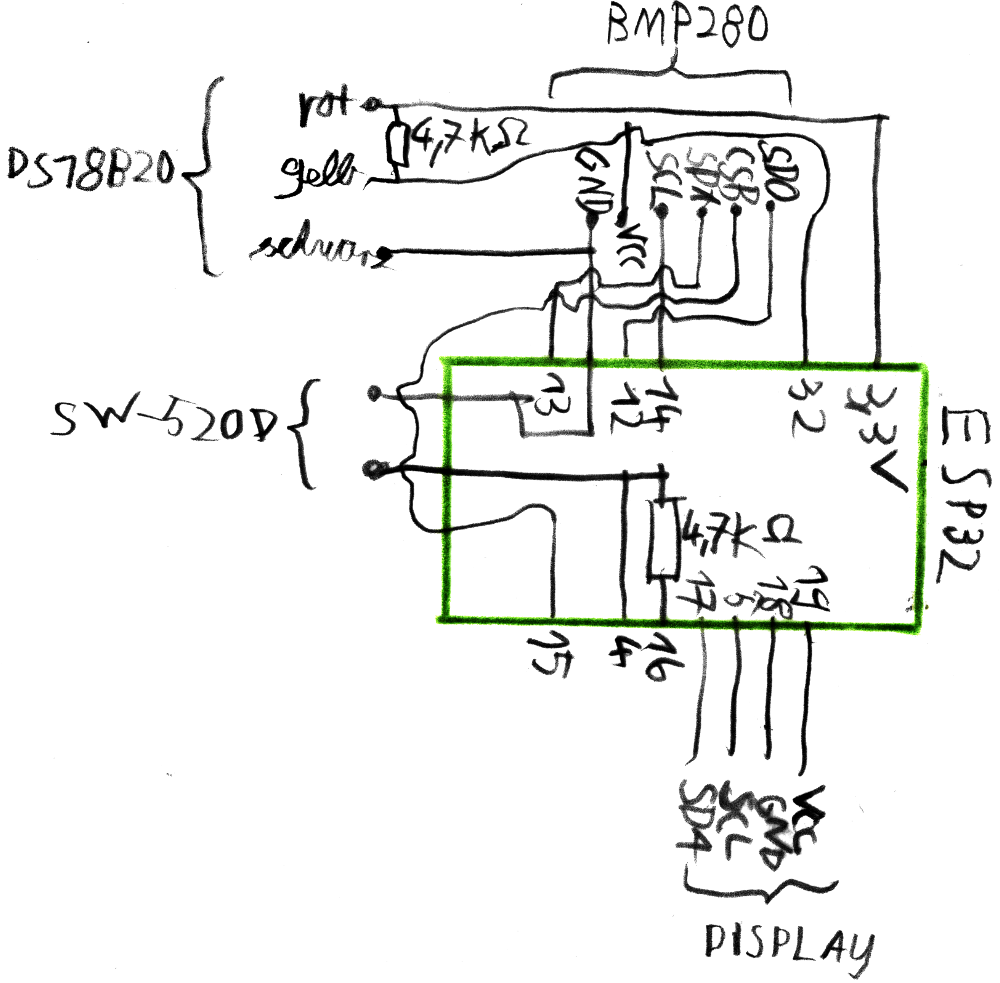 BMP280
rot
4,7kΩ
DS18B20
gelb
schwarz
GND
VCC
SCL
SDA
CSB
SDO
SW-520D
13
12
14
32
3,3V
ESP32
4,7kΩ
17
5
18
19
15
4
16
SDA
SCL
GND
VCC
DISPLAY